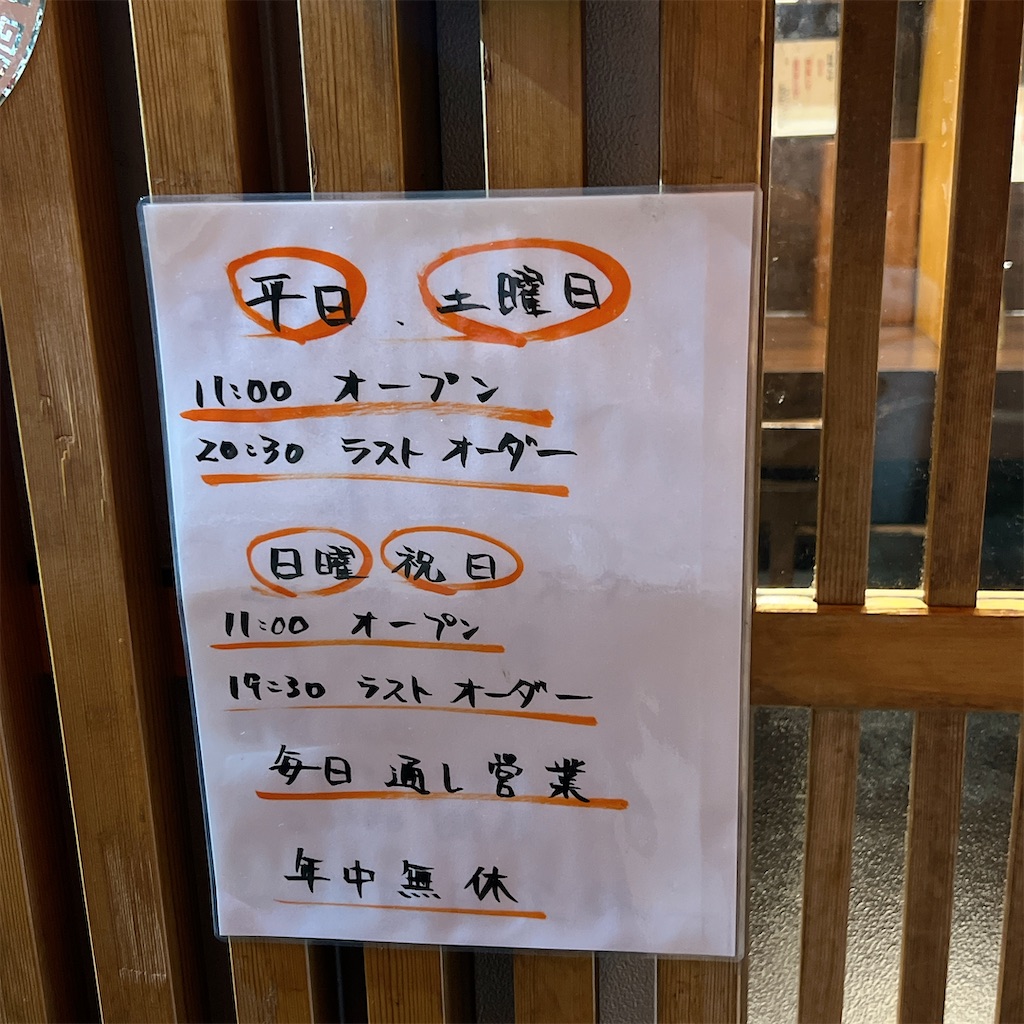 平日、土曜日
11:00 オープン
20:30 ラストオーダー
日曜 祝日
11:00 オープン
19:30 ラストオーダー
毎日 通し営業
年中無休